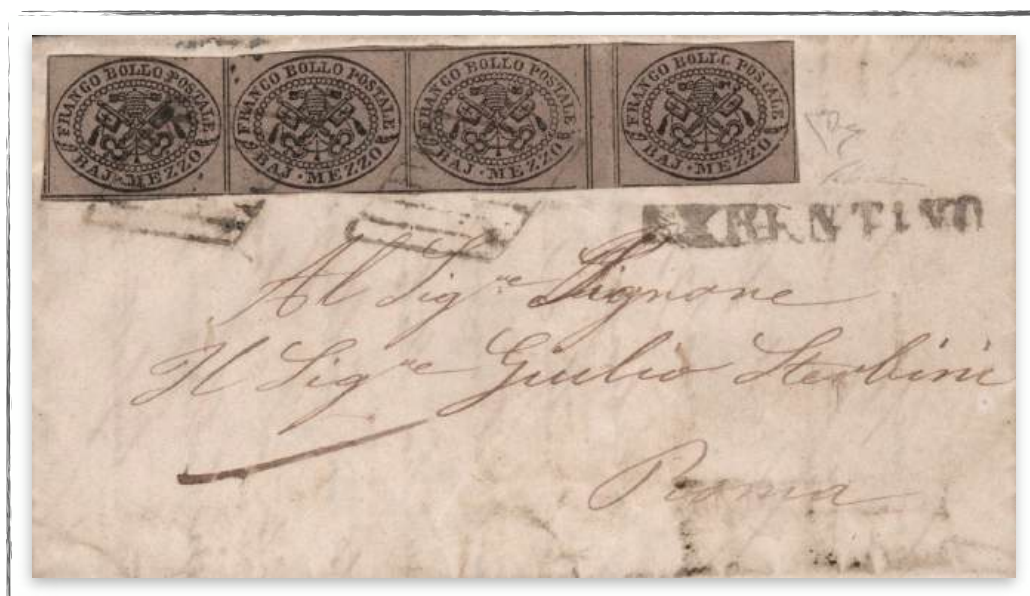 FRANCO BOLLO POSTALE
BAJ·MEZZO
FRANCO BOLLO POSTALE
BAJ·MEZZO
FRANCO BOLLO POSTALE
BAJ·MEZZO
FRANCO BOLLO POSTALE
BAJ·MEZZO
FERENTINO
Al Sig.re Signore
Il Sig.re Giulio Sterbini
Roma